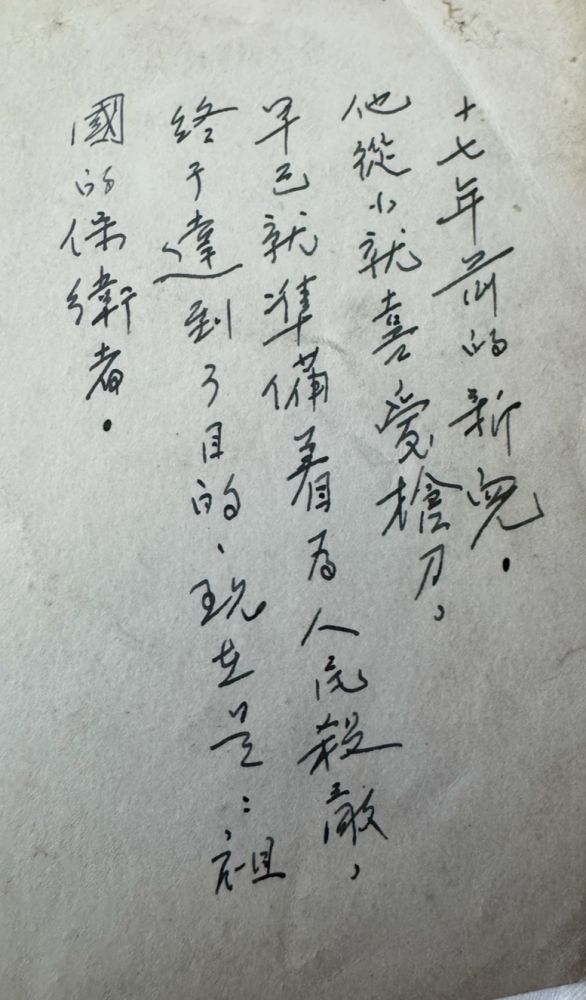 十七年前的新兒.
他從小就喜愛槍刀,
早已就準備着为人民殺敵,
终于達到了目的、現在是:祖
國的保衛者.